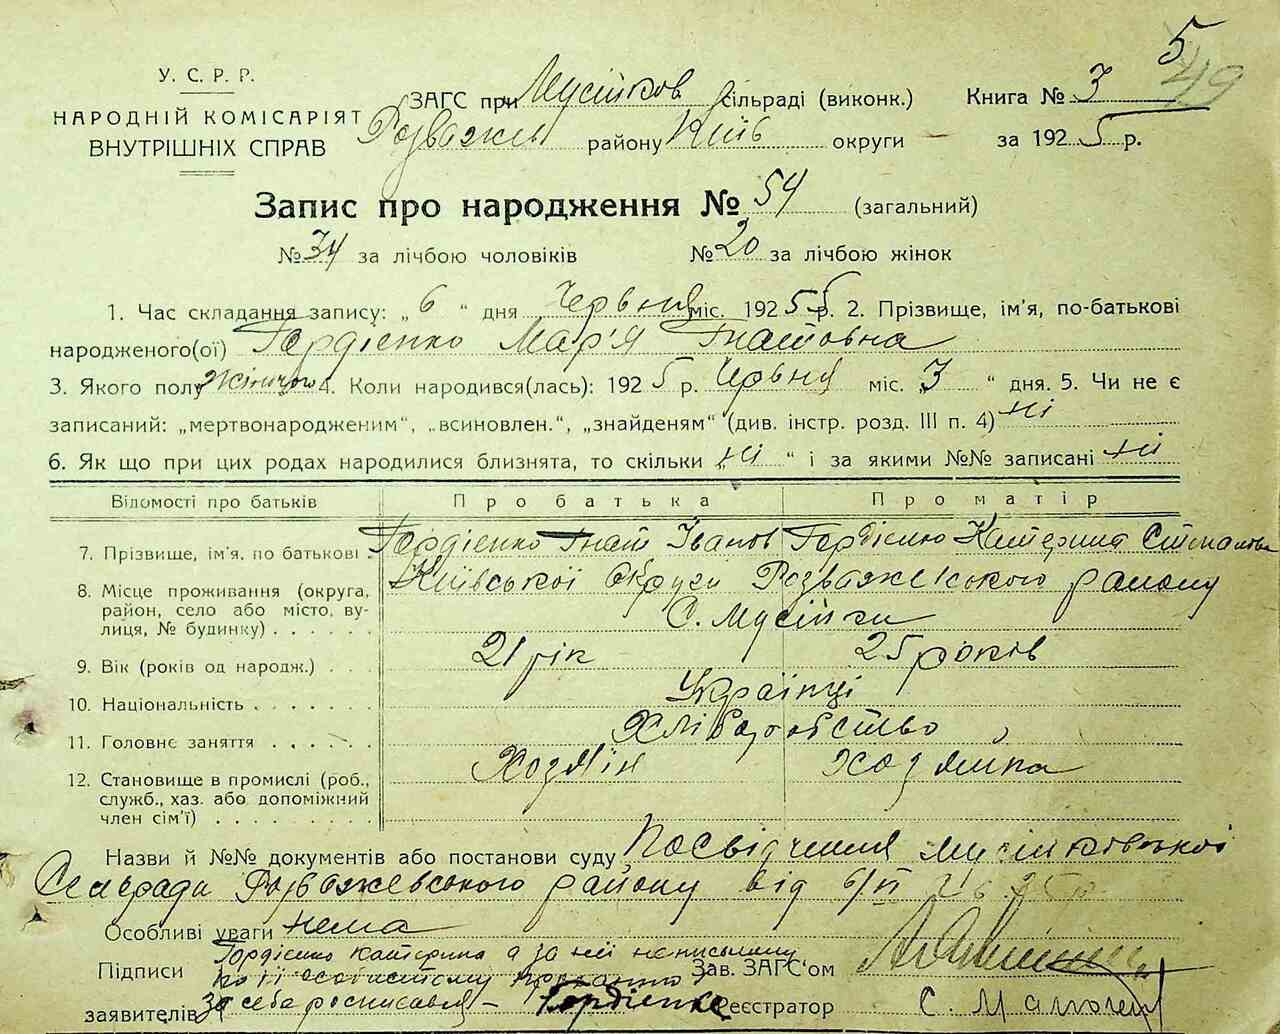 5
49
У. С. Р. Р.
НАРОДНІЙ КОМІСАРІЯТ
ВНУТРІШНІХ СПРАВ
ЗАГС при Мусійков сільраді (виконк.) Книга № 3
Розважев району Київ округи за 1925 р.
Запис про народження № 54 (загальний)
№ 34 за лічбою чоловіків № 20 за лічбою жінок
1. Час складання запису: „ 6 “ дня Червня міс. 1925 р. 2. Прізвище, ім'я, по-батькові
народженого(ої) Гордієнко Мар'я Гнатовна
3. Якого полу жіночого 4. Коли народився(лась): 1925 р. Червня міс. „3 “ дня. 5. Чи не є
записаний: „мертвонародженим“, „всиновлен.“, „знайденям“ (див. інстр. розд. III п. 4) ні
6. Як що при цих родах народилися близнята, то скільки „ ні “ і за якими №№ записані ні
Відомості про батьків Про батька Про матір
7. Прізвище, ім'я, по батькові Гордієнко Гнат Іванов Гордієнко Катерина
8. Місце проживання (округа, район, село або місто, вулиця, № будинку) Київської Округи Розважевського району
С. Мусійки
9. Вік (років од народж.) 21 рік 25 років
10. Національність Українці
11. Головне заняття Хліборобство
12. Становище в промислі (роб., служб., хаз. або допоміжний член сім'ї) Хозяїн Хозяйка
Назви й №№ документів або постанови суду Посвідчення Мусійковської
Сельради Розважевського району від 6/VI 25 р.
Особливі уваги нема
Підписи Гордієнко Катерина а за неї неписьмену
по її особистому проханню Зав. ЗАГС'ом
заявителів За себе росписався – Гордієнко Реєстратор С.